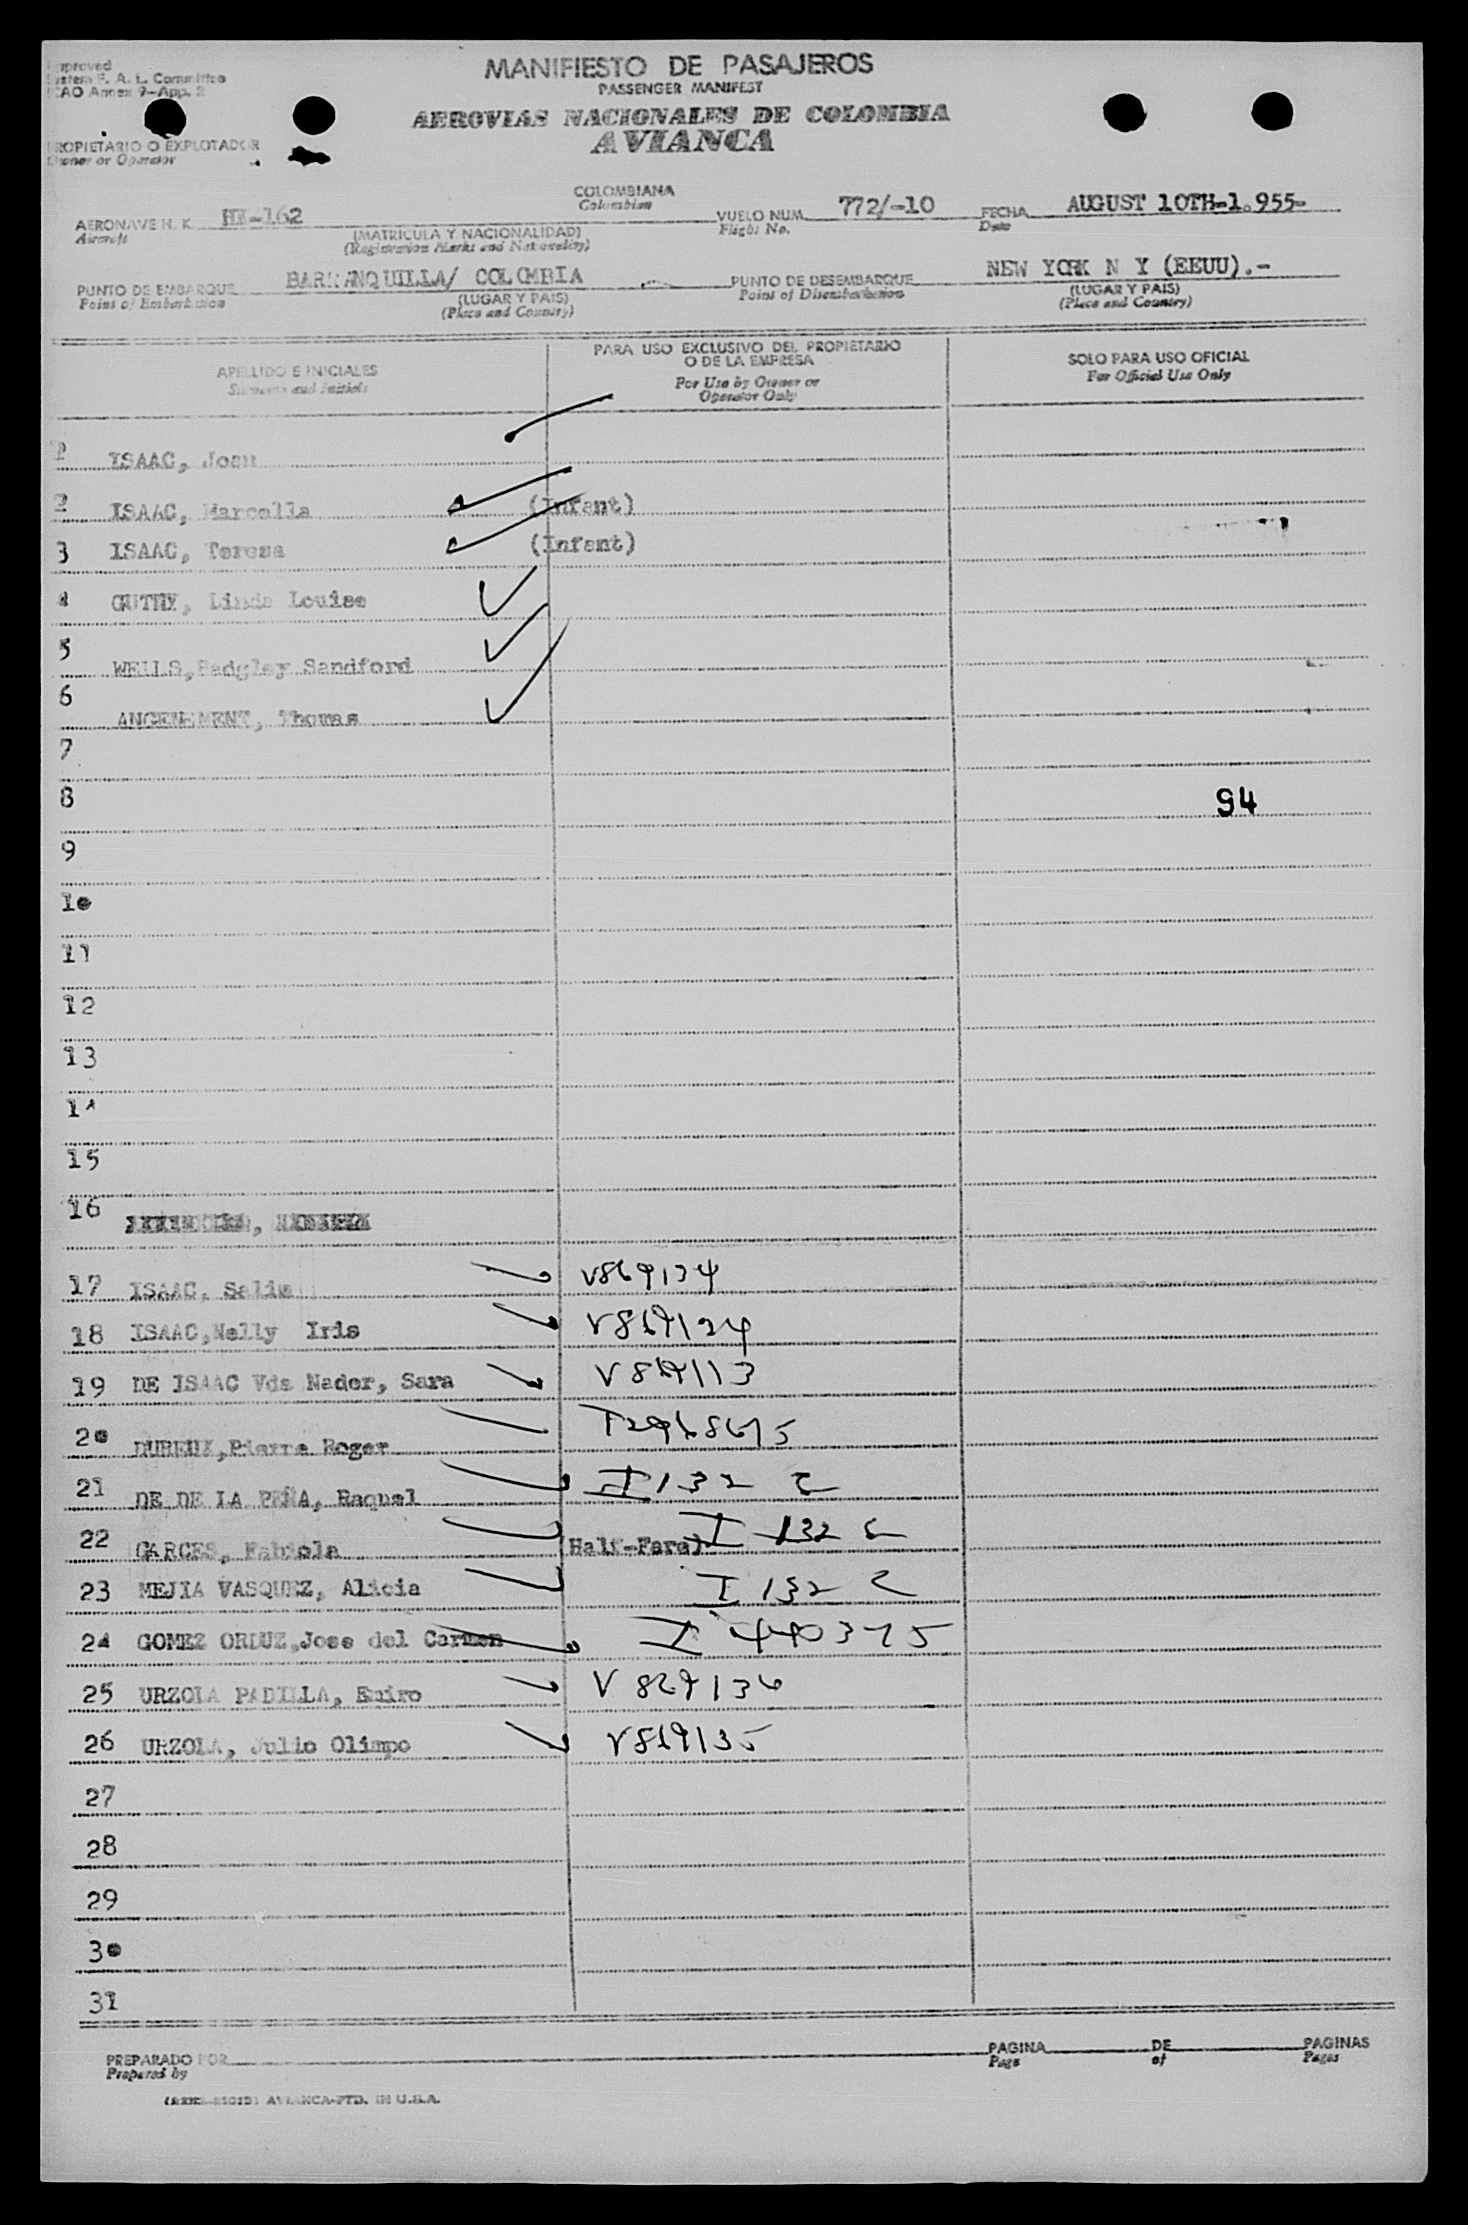 Approved
System F. A. L. Committee
ICAO Annex 9-App. 2
MANIFIESTO DE PASAJEROS
PASSENGER MANIFEST
AEROVIAS NACIONALES DE COLOMBIA
AVIANCA
PROPIETARIO O EXPLOTADOR
Owner or Operator
AERONAVE H. K. HK-162 COLOMBIANA VUELO NUM. 772/-10 FECHA AUGUST 10TH-1.955-
Aircraft Colombian Flight No. Date
(MATRICULA Y NACIONALIDAD)
(Registration Marks and Nationality)
PUNTO DE EMBARQUE BARRANQUILLA/ COLOMBIA PUNTO DE DESEMBARQUE NEW YORK N Y (EEUU).-
Point of Embarkation (LUGAR Y PAIS) Point of Disembarkation (LUGAR Y PAIS)
(Place and Country) (Place and Country)
APELLIDO E INICIALES PARA USO EXCLUSIVO DEL PROPIETARIO O DE LA EMPRESA SOLO PARA USO OFICIAL
Surname and Initials For Use by Owner or Operator Only For Official Use Only
1 ISAAC,
2 ISAAC, Marcella (Infant)
3 ISAAC, Teresa (Infant)
4 Linda Louise
5 WELLS, Sandford
6 Thomas
7
8 94
9
10
11
12
13
14
15
16
17 ISAAC, Salim V869134
18 ISAAC,Nelly Iris
19 DE ISAAC Vda Nader, Sara
20 Pierre Roger
21 DE DE LA PEÑA, Raquel I 132
22 GARCES, Fabiola (Half-Fare) I 132
23 MEJIA VASQUEZ, Alicia I 132
24 GOMEZ ORDUZ,Jose del Carmen
25 URZOLA PADILLA, Emiro
26 URZOLA, Julio Olimpo V819135
27
28
29
30
31
PREPARADO POR PAGINA DE PAGINAS
Prepared by Page of Pages
AVIANCA-PTD. IN U.S.A.